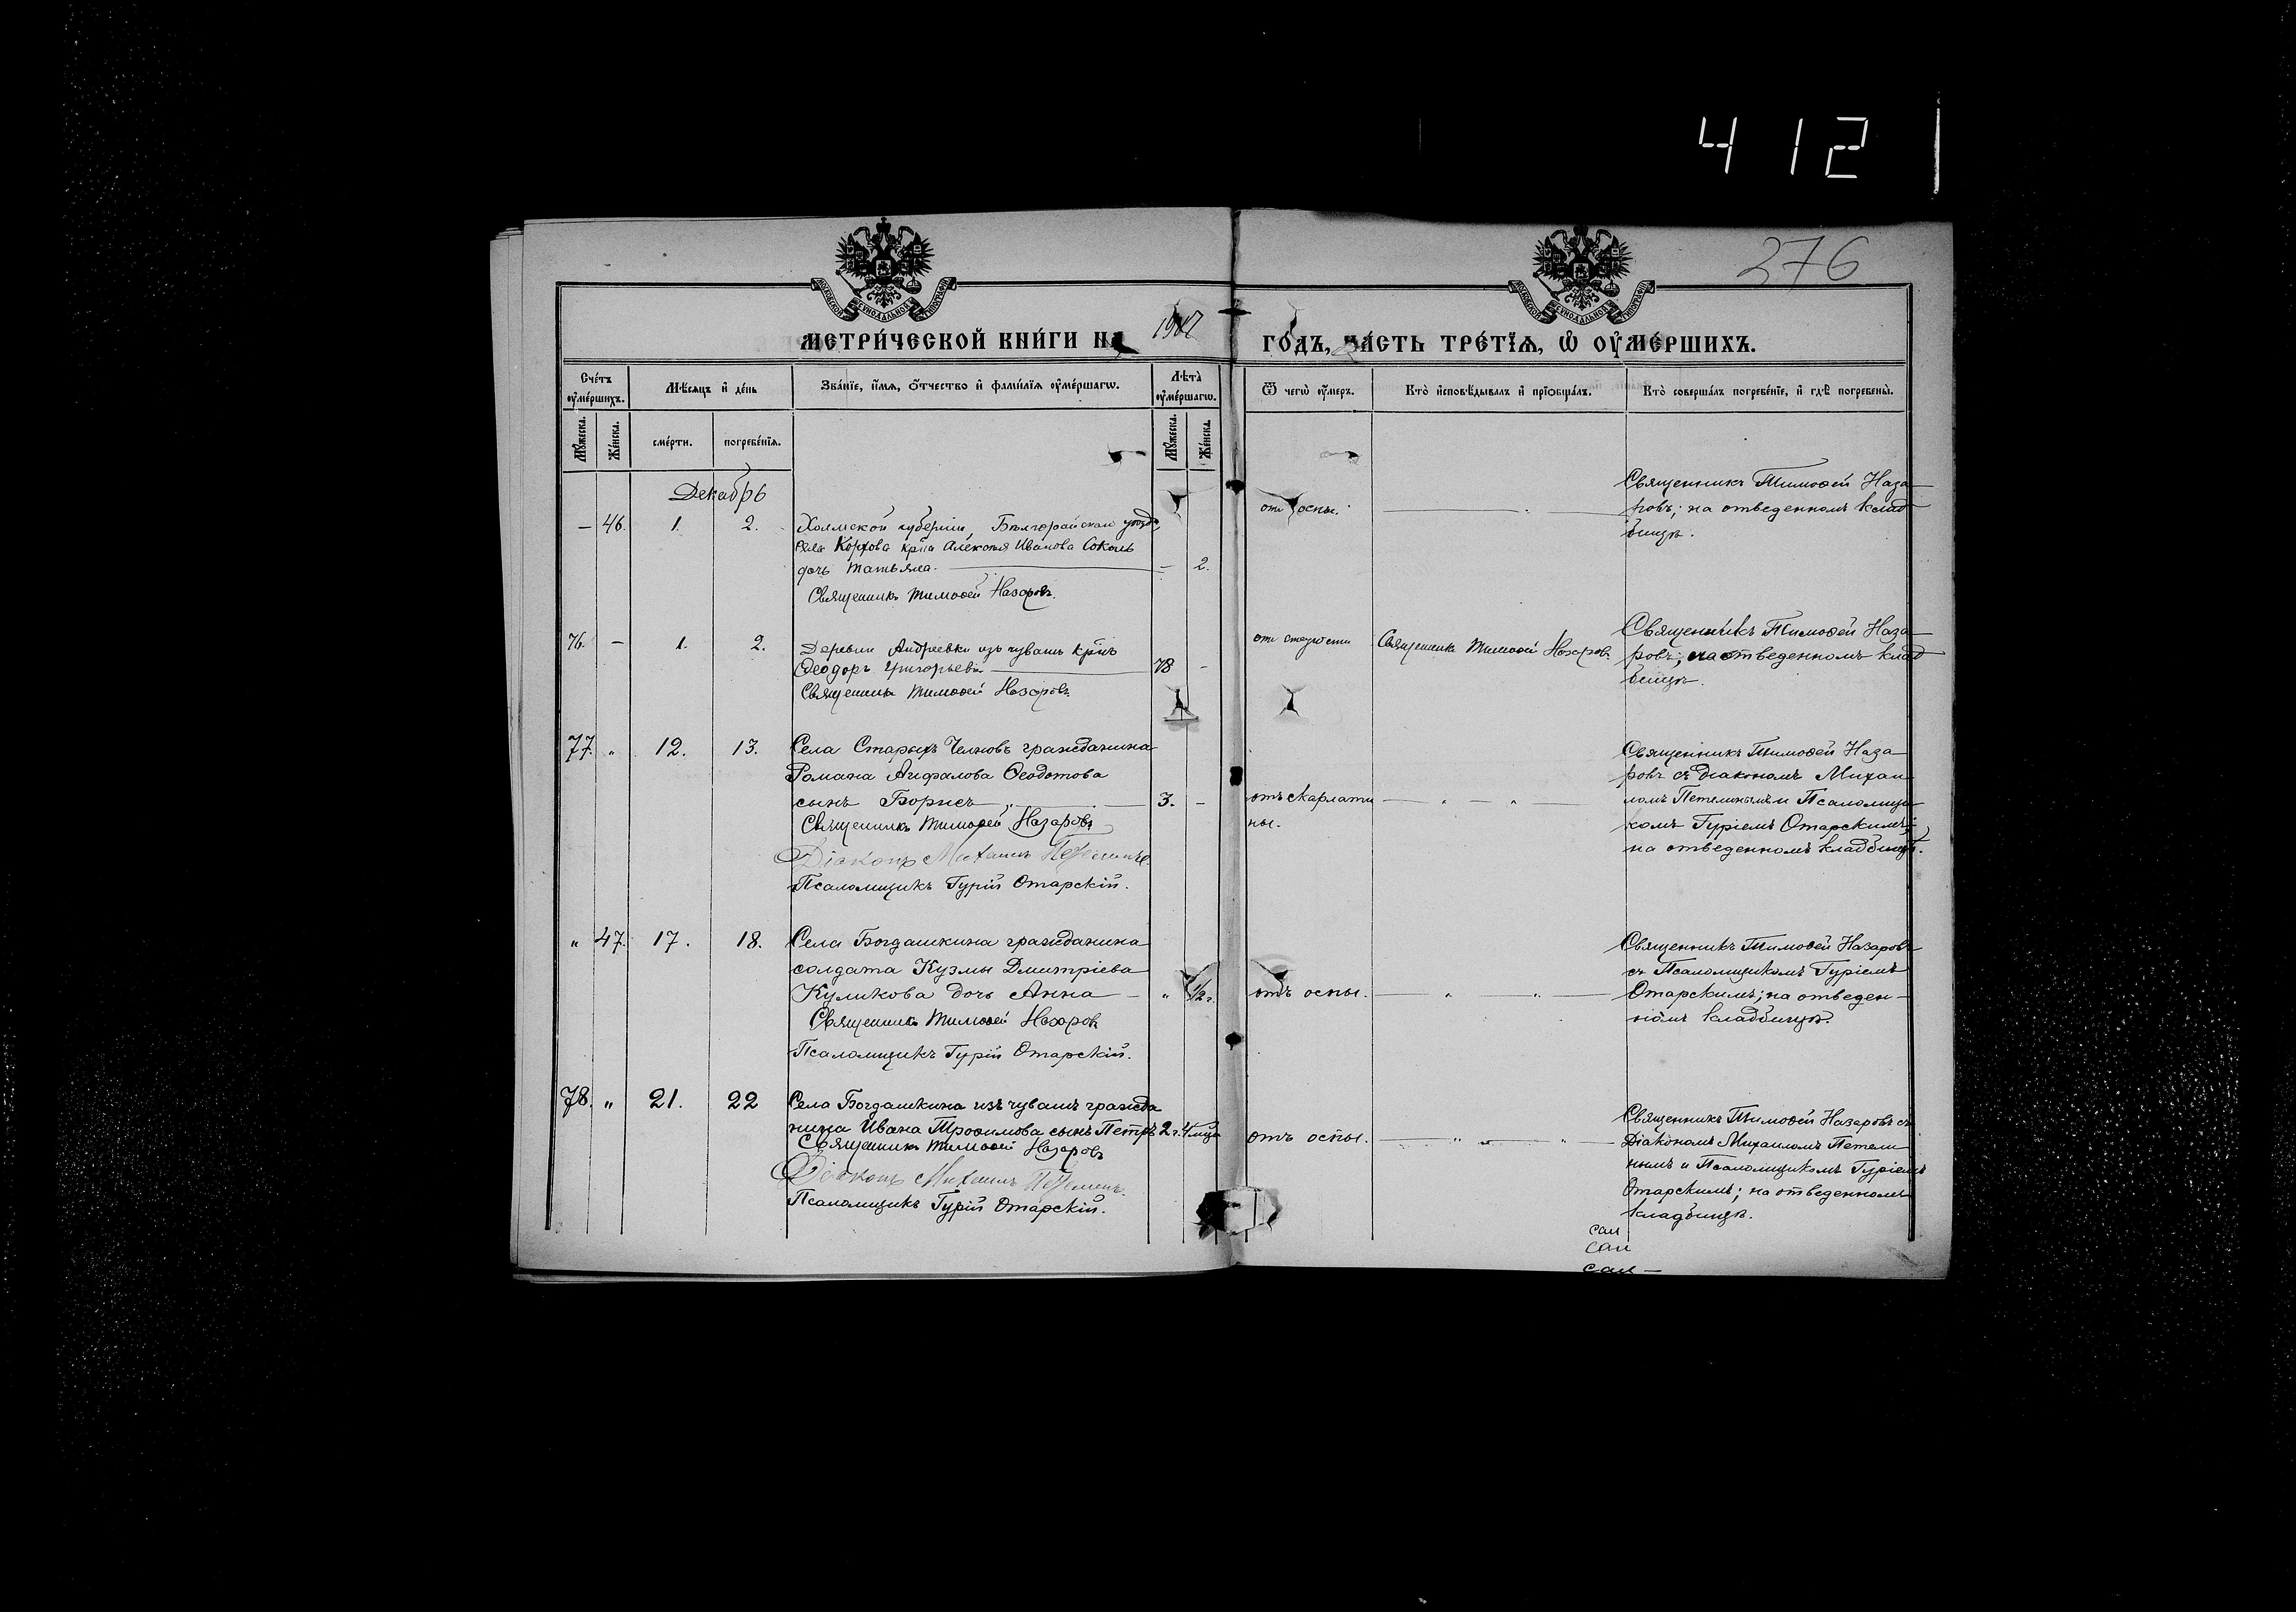 412
276
МОСКОВСКОЙ СѴНОДАЛЬНОЙ ТИПОГРАФІИ
МОСКОВСКОЙ СѴНОДАЛЬНОЙ ТИПОГРАФІИ
МЕТРИ́ЧЕСКОЙ КНИ́ГИ НА 1917 ГО́ДЪ, ЧА́СТЬ ТРЕ́ТІѦ, Ѡ҆ ОУ҆МЕ́РШИХЪ.
Сче́тъ оу҆ме́ршихъ.
Мѣ́сяцъ и҆ де́нь
Зва́нїе, и҆́мѧ, ѻ҆́тчество и҆ фами́лїѧ оу҆ме́ршагѡ.
Лѣ́та̀ оу҆ме́ршагѡ.
Ѿ чегѡ̀ оу҆́меръ.
Кто̀ и҆сповѣ́дывалъ и҆ прїѻбща́лъ.
Кто̀ соверша́лъ погребе́нїе, и҆ гдѣ̀ погребены̀.
Мꙋ́жеска.
Же́нска.
сме́рти.
погребе́нїѧ.
Мꙋ́жеска.
Же́нска.
Декабрь
– 46. 1. 2. Холмской губерніи, Бѣлгорайскаго уѣзда,
села Корхова кр͠на Алексѣя Иванова Соколъ
дочь Татьяна. – 2.
Священникъ Тимоѳей Назаровъ.
отъ оспы.
Священникъ Тимоѳей Наза
ровъ; на отведенномъ клад
бищѣ.
76. – 1. 2. Деревни Андреевки изъ чувашъ кр͠нъ
Ѳеодоръ Григорьевъ 78 –
Священникъ Тимоѳей Назаровъ.
отъ старости
Священникъ Тимоѳей Назаровъ.
Священникъ Тимоѳей Наза
ровъ; на отведенномъ клад
бищѣ.
77. „ 12. 13. Села Старыхъ Челновъ гражданина
Романа Анфалова Ѳеодотова
сынъ Борисъ „ 3. –
Священникъ Тимоѳей Назаровъ
Діаконъ Михаилъ Петелинъ
Псаломщикъ Гурій Отарскій.
отъ скарлати
ны.
Священникъ Тимоѳей Наза
ровъ съ діакономъ Михаи
ломъ Петелинымъ и Псаломщи
комъ Гуріемъ Отарскимъ;
на отведенномъ кладбищѣ.
„ 47. 17. 18. Села Богдашкина гражданина
солдата Кузмы Дмитріева
Куликова дочь Анна – „ ½ г.
Священникъ Тимоѳей Назаровъ
Псаломщикъ Гурій Отарскій.
отъ оспы.
Священникъ Тимоѳей Назаровъ
съ Псаломщикомъ Гуріемъ
Отарскимъ; на отведен–
номъ кладбищѣ.
78. „ 21. 22 Села Богдашкина изъ чувашъ гражда
нина Ивана Трофимова сынъ Петръ 2 г. 4 мца
Священникъ Тимоѳей Назаровъ
Діаконъ Михаилъ Петелинъ.
Псаломщикъ Гурій Отарскій.
отъ оспы.
Священникъ Тимоѳей Назаровъ съ
Діакономъ Михаиломъ Петели
нымъ и Псаломщикомъ Гуріемъ
Отарскимъ; на отведенномъ
кладбищѣ.